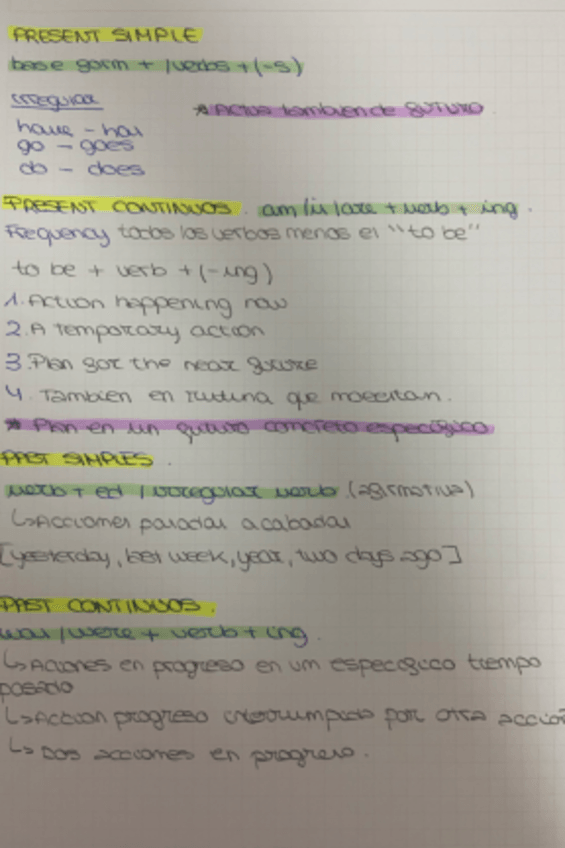 PRESENT SIMPLE
base form + /verbs + (-s)
irregular
* Actos tambien de futuro
have - has
go - goes
do - does
PRESENT CONTINUOS. am/is/are + verb + ing.
Frequency todos los verbos menos el "to be"
to be + verb + (-ing)
1. Action happening now
2. A temporary action
3. Plan for the near future
4. Tambien en rutina que molestan.
* Plan en un futuro concreto especifico
PAST SIMPLES.
verb + ed / irregular verb (afirmativa)
↳ Acciones pasadas acabadas
[yesterday, last week, year, two days ago]
PAST CONTINUOS.
was/were + verb + ing.
↳ Aciones en progreso en un especifico tiempo
pasado
↳ Accion progreso interrumpida por otra acción
↳ Dos acciones en progreso.